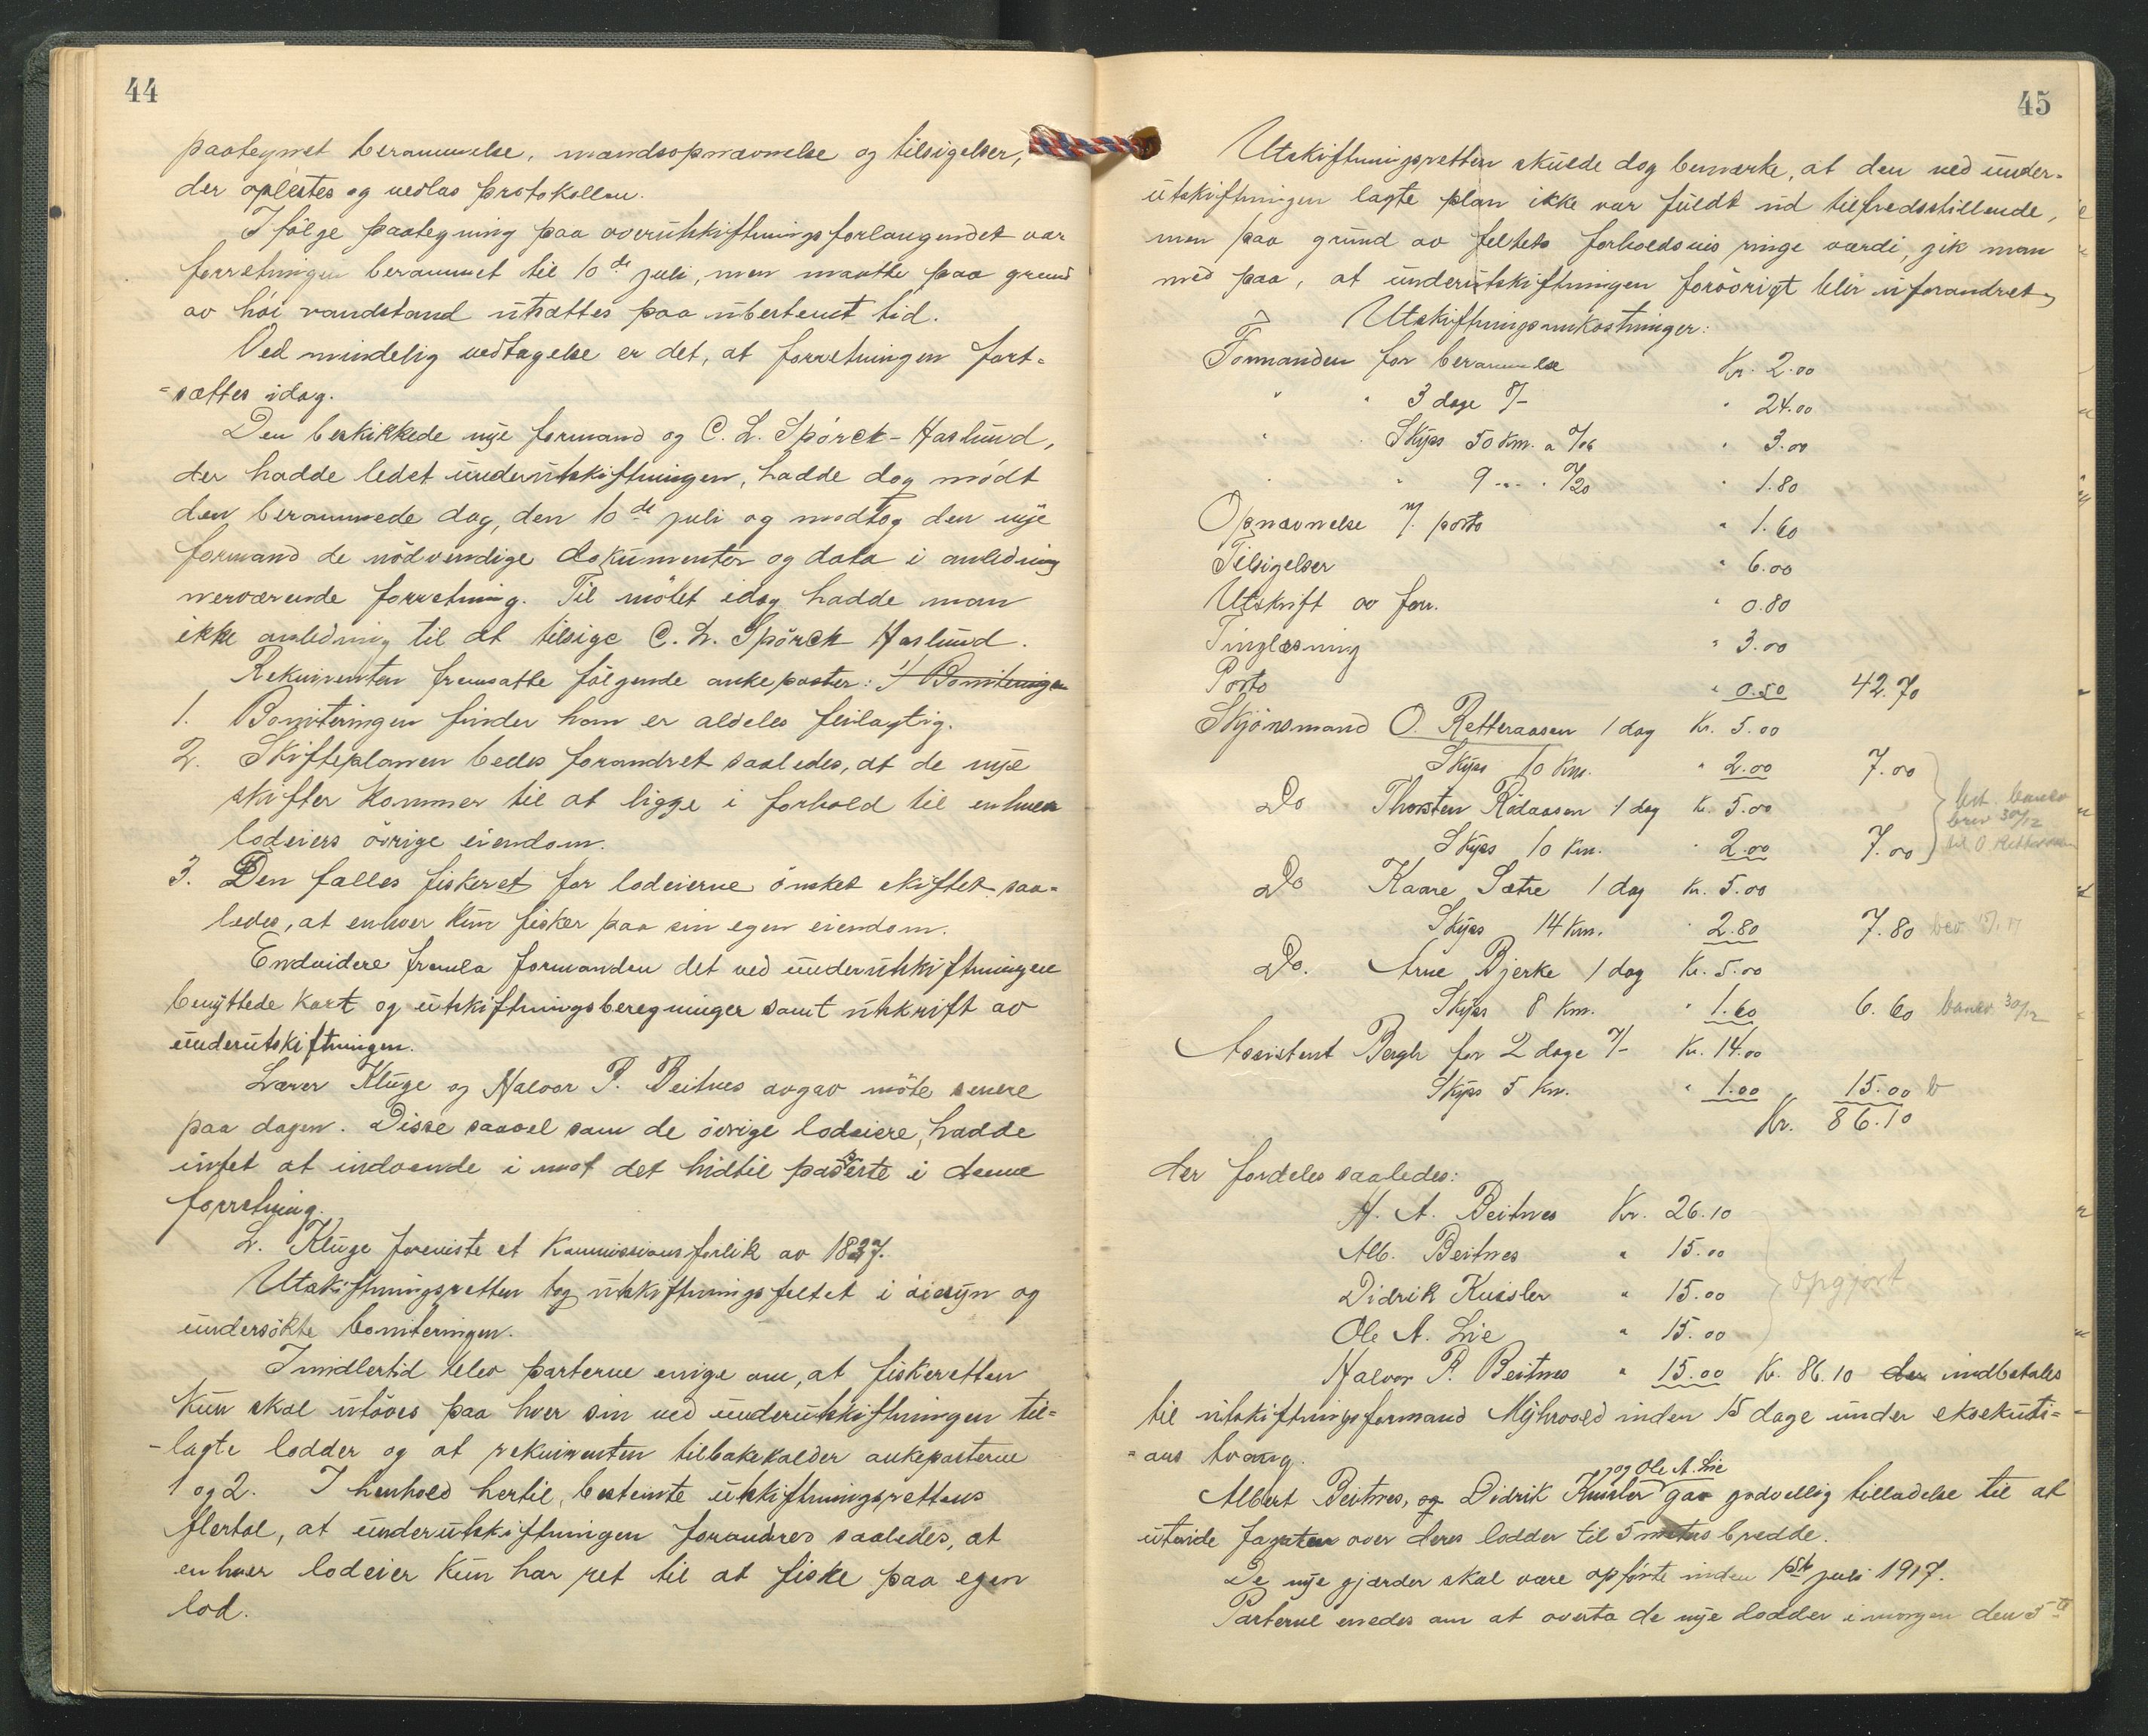 44
paategnet berammelse, mandsopnævnelse og tilsigelser,
der oplæstes og vedlas protokollen.
Ifölge paategning paa overutskiftningsforlangendet var
forretningen berammet til 10de juli, men maatte paa grund
av höi vandstand utsættes paa ubestemt tid.
Ved mindelig vedtagelse er det, at forretningen fort-
-sættes idag.
Den beskikkede nye formand og C. L. Spörck-Haslund,
der hadde ledet underutskiftningen, hadde dog mödt
den berammede dag, den 10de juli og modtog den nye
formand de nödvendige dokumenter og data i anledning
nerværende forretning. Til mötet idag hadde man
ikke anledning til at tilsige C. L. Spörck Haslund.
Rekvirenten fremsatte fölgende ankeposter: 1) Boniteringen
1. Boniteringen finder han er aldeles feilagtig.
2. Skifteplanen bedes forandret saaledes, at de nye
skifter kommer til at ligge i forhold til enhver
lodeiers övrige eiendom.
3. Den fælles fiskeret for lodeierne önskes skiftet saa-
ledes, at enhver kun fisker paa sin egen eiendom.
Endvidere fremla formanden det ved underutskiftningen
benyttede kart og utskiftningsberegninger samt utskrift av
underutskiftningen.
Lærer Kluge og Halvor P. Beitnes avgav möte senere
paa dagen. Disse saavel som de övrige lodeiere, hadde
intet at indvende i mot det hidtil passerte i denne
forretning.
L. Kluge foreviste et kommissionsforlik av 1837.
Utskiftningsretten tog utskiftningsfeltet i öiesyn og
undersökte boniteringen.
Imidlertid blev parterne enige om, at fiskeretten
kun skal utöves paa hver sin ved underutskiftningen til-
-lagte lodder og at rekvirenten tilbakekalder ankeposterne
1 og 2. I henhold hertil, bestemte utskiftningsrettens
flertal, at underutskiftningen forandres saaledes, at
enhver lodeier kun har ret til at fiske paa egen
lod.
45
Utskiftningsretten skulde dog bemærke, at den ved under-
utskiftningen lagte plan ikke var fuldt ud tilfredsstillende,
men paa grund av feltets forholdsvis ringe værdi, gik man
med paa, at underutskiftningen forövrigt blir uforandret,
Utskiftningsomkostninger:
Formanden for berammelse Kr. 2.00
" " 3 dage 8/- " 24.00
" " Skyss 50 km. a 0/06 " 3.00
" " 9 " " 0/20 " 1.80
Opnævnelse m/ porto " 1.60
Tilsigelser " 6.00
Utskrift av forr. " 0.80
Tinglæsning " 3.00
Porto " 0.50 42.70
Skjönsmand O. Retteraasen 1 dag Kr. 5.00
Skyss 10 Km. " 2.00 7.00
Do Thorsten Rödaasen 1 dag Kr. 5.00
Skyss 10 Km. " 2.00 7.00
brev 30/12
til O Retteraasen
Do Kaare Sætre 1 dag Kr. 5.00
Skyss 14 Km. " 2.80 7.80
Do. Arne Bjerke 1 dag Kr. 5.00
Skyss 8 Km. " 1.60 6.60 30/12
Assistent Bergh for 2 dage 7/- Kr. 14.00
Skyss 5 Km. " 1.00 15.00
Kr. 86.10
der fordeles saaledes:
H. A. Beitnes Kr. 26.10
Alb. Beitnes " 15.00
Didrik Kuisler " 15.00
opgjort
Ole A. Lie " 15.00
Halvor P. Beitnes " 15.00 Kr. 86.10 der indbetales
til utskiftningsformand Myhrvold inden 15 dage under eksekuti-
-ons tvang.
og Ole A. Lie
Albert Beitnes, og Didrik Kuisler gav godvillig tilladelse til at
utvide fægaten over deres lodder til 5 meters bredde.
De nye gjærder skal være opförte inden 15de juli 1917.
Parterne enedes om at overta de nye lodder i morgen den 5te